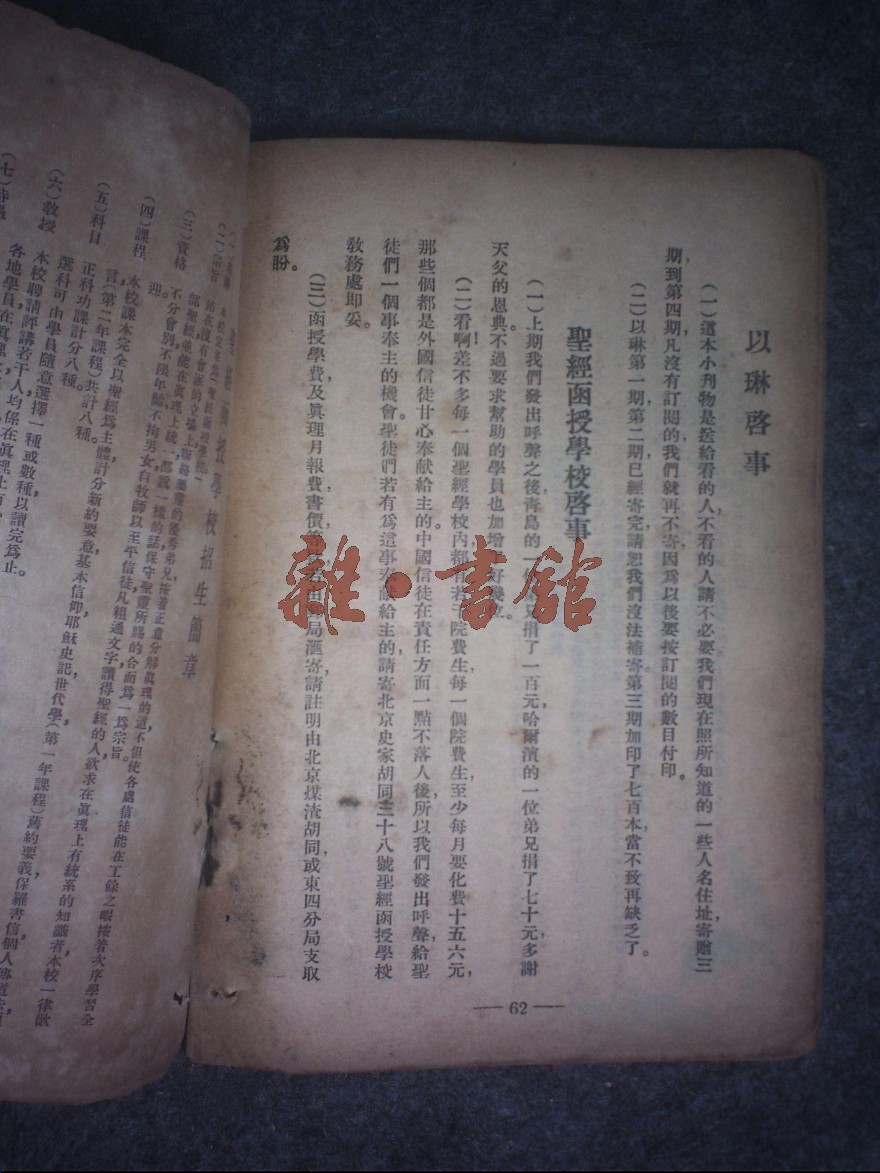 以琳啓事
(一)這本小刊物是送給看的人,不看的人請不必要,我們現在照所知道的一些人名住址,寄贈三
期,到第四期凡沒有訂閱的我們就再不寄,因爲以後要按訂閱的數目付印。
(二)以琳第一期第二期已經寄完,請恕我們沒法補寄。第三期加印了七百本,當不致再缺乏了。
聖經函授學校啓事
(一)上期我們發出呼聲之後,靑島的一位弟兄捐了一百元,哈爾濱的一位弟兄捐了七十元,多謝
天父的恩典。不過要求幫助的學員也加增了好幾位。
(二)看啊!差不多每一個聖經學校內都有若干院費生,每一個院費生至少每月要化費十五六元,
那些個都是外國信徒甘心奉獻給主的。中國信徒在責任方面一點不落人後,所以我們發出呼聲,給聖
徒們一個事奉主的機會。聖徒們若有爲這事奉獻給主的,請寄北京史家胡同三十八號聖經函授學校
敎務處即妥。
(三)函授學費及眞理月報費書價等 由郵局滙寄,請註明由北京煤渣胡同,或東四分局支取
爲盼。
— 62 —
函授學校招生簡章
(二)宗旨
(三)資格 不分會別,不限年齡,不拘男女,自牧師以至平信徒,凡粗通文字,讀得聖經的人,欲求在眞理上有統系的知識者,本校一律歡
迎。
(四)課程 本校課本完全以聖經爲主體,計分新約要意,基本信仰,耶穌史記,世代學,(第一年課程)舊約要義,保羅書信,個人
言(第二年課程)共計八種。
(五)科目 正科功課計分八種。
選科可由學員隨意選擇一種或數種,以讀完爲止。
(六)敎授 本校聘請評講者干人,均係在眞理上
(七)待遇 各地學員在眞理
雜·書舘